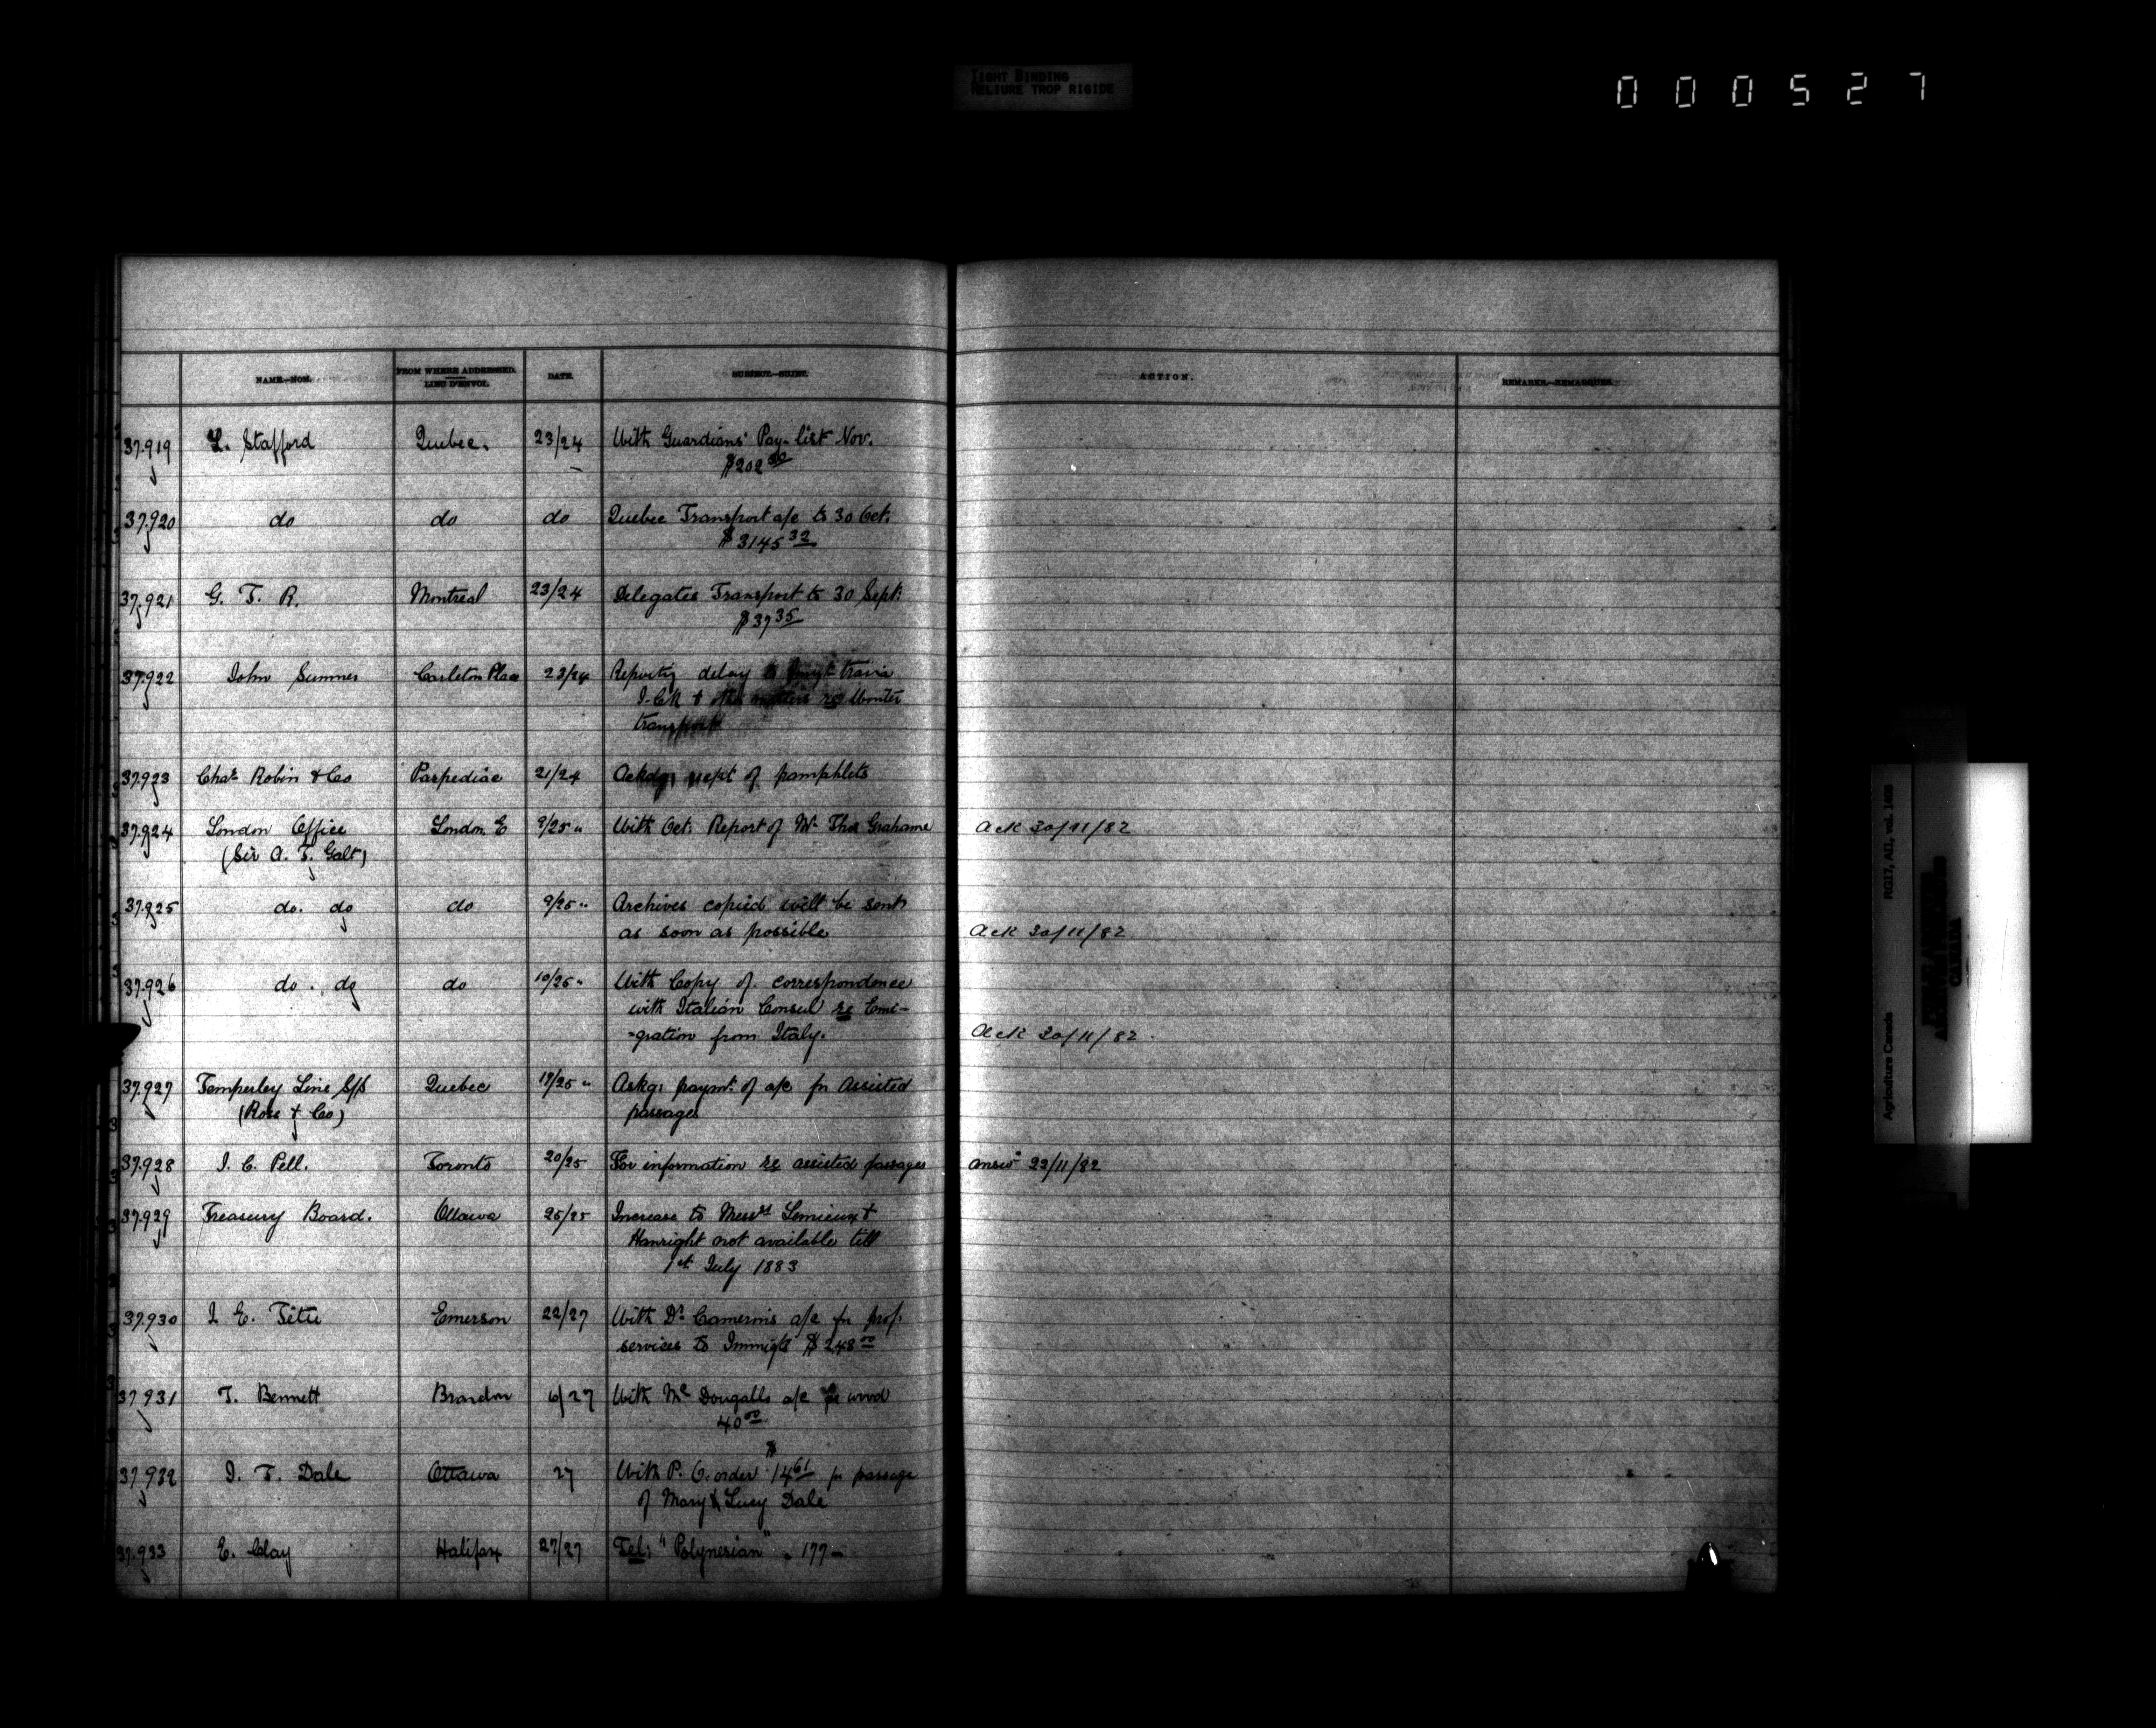 TIGHT BINDING
RELIURE TROP RIGIDE
000527
NAME.—NOM. FROM WHERE ADDRESSED. LIEU D'ENVOI. DATE. SUBJECT.—SUJET. ACTION. REMARKS.—REMARQUES.
37.919 L. Stafford Quebec. 23/24 With Guardians' Pay-list Nov.
$202.00
37.920 do do do Quebec Transport a/c to 30 Oct.
$3145 32
37.921 G. T. R. Montreal 23/24 Delegates Transport to 30 Sept:
$37 35
37.922 John Sumner Carleton Place 23/24 Reporting delay train
I.C.R & other matters re Winter
transport
37.923 Chas Robin & Co Paspediac 21/24 Ackdg: recpt of pamphlets
37.924 London Office London E 9/25 " With Oct. Report of Mr Thos Grahame Ack 30/11/82
(Sir A. T. Galt)
37.925 do. do do 9/25 " Archives copied will be sent
as soon as possible Ack 30/11/82
37.926 do. do do 10/25 " With Copy of correspondence
with Italian Consul re Emi-
-gration from Italy. Ack 30/11/82.
37.927 Temperley Line S/S Quebec 19/25 " Askg: paymt: of a/c for Assisted
(Ross & Co) passages
37.928 J. C. Pell. Toronto 20/25 For information re assisted passages answd 22/11/82
37.929 Treasury Board. Ottawa 25/25 Increase to Messrs Lemieux &
Hanright not available till
1st July 1883
37.930 J E. Tétu Emerson 22/27 With Dr Cameron's a/c for prof.
services to Immigts $248 00
37.931 T. Bennett Brandon 6/27 With McDougalls a/c for wood
40 00
37.932 J. T. Dale Ottawa 27 With P. O. order $14 61 for passage
of Mary & Lucy Dale
37.933 E. Clay Halifax 27/27 Tel: "Polynesian" . 177 -
Agriculture Canada RG17, AII, vol. 1408